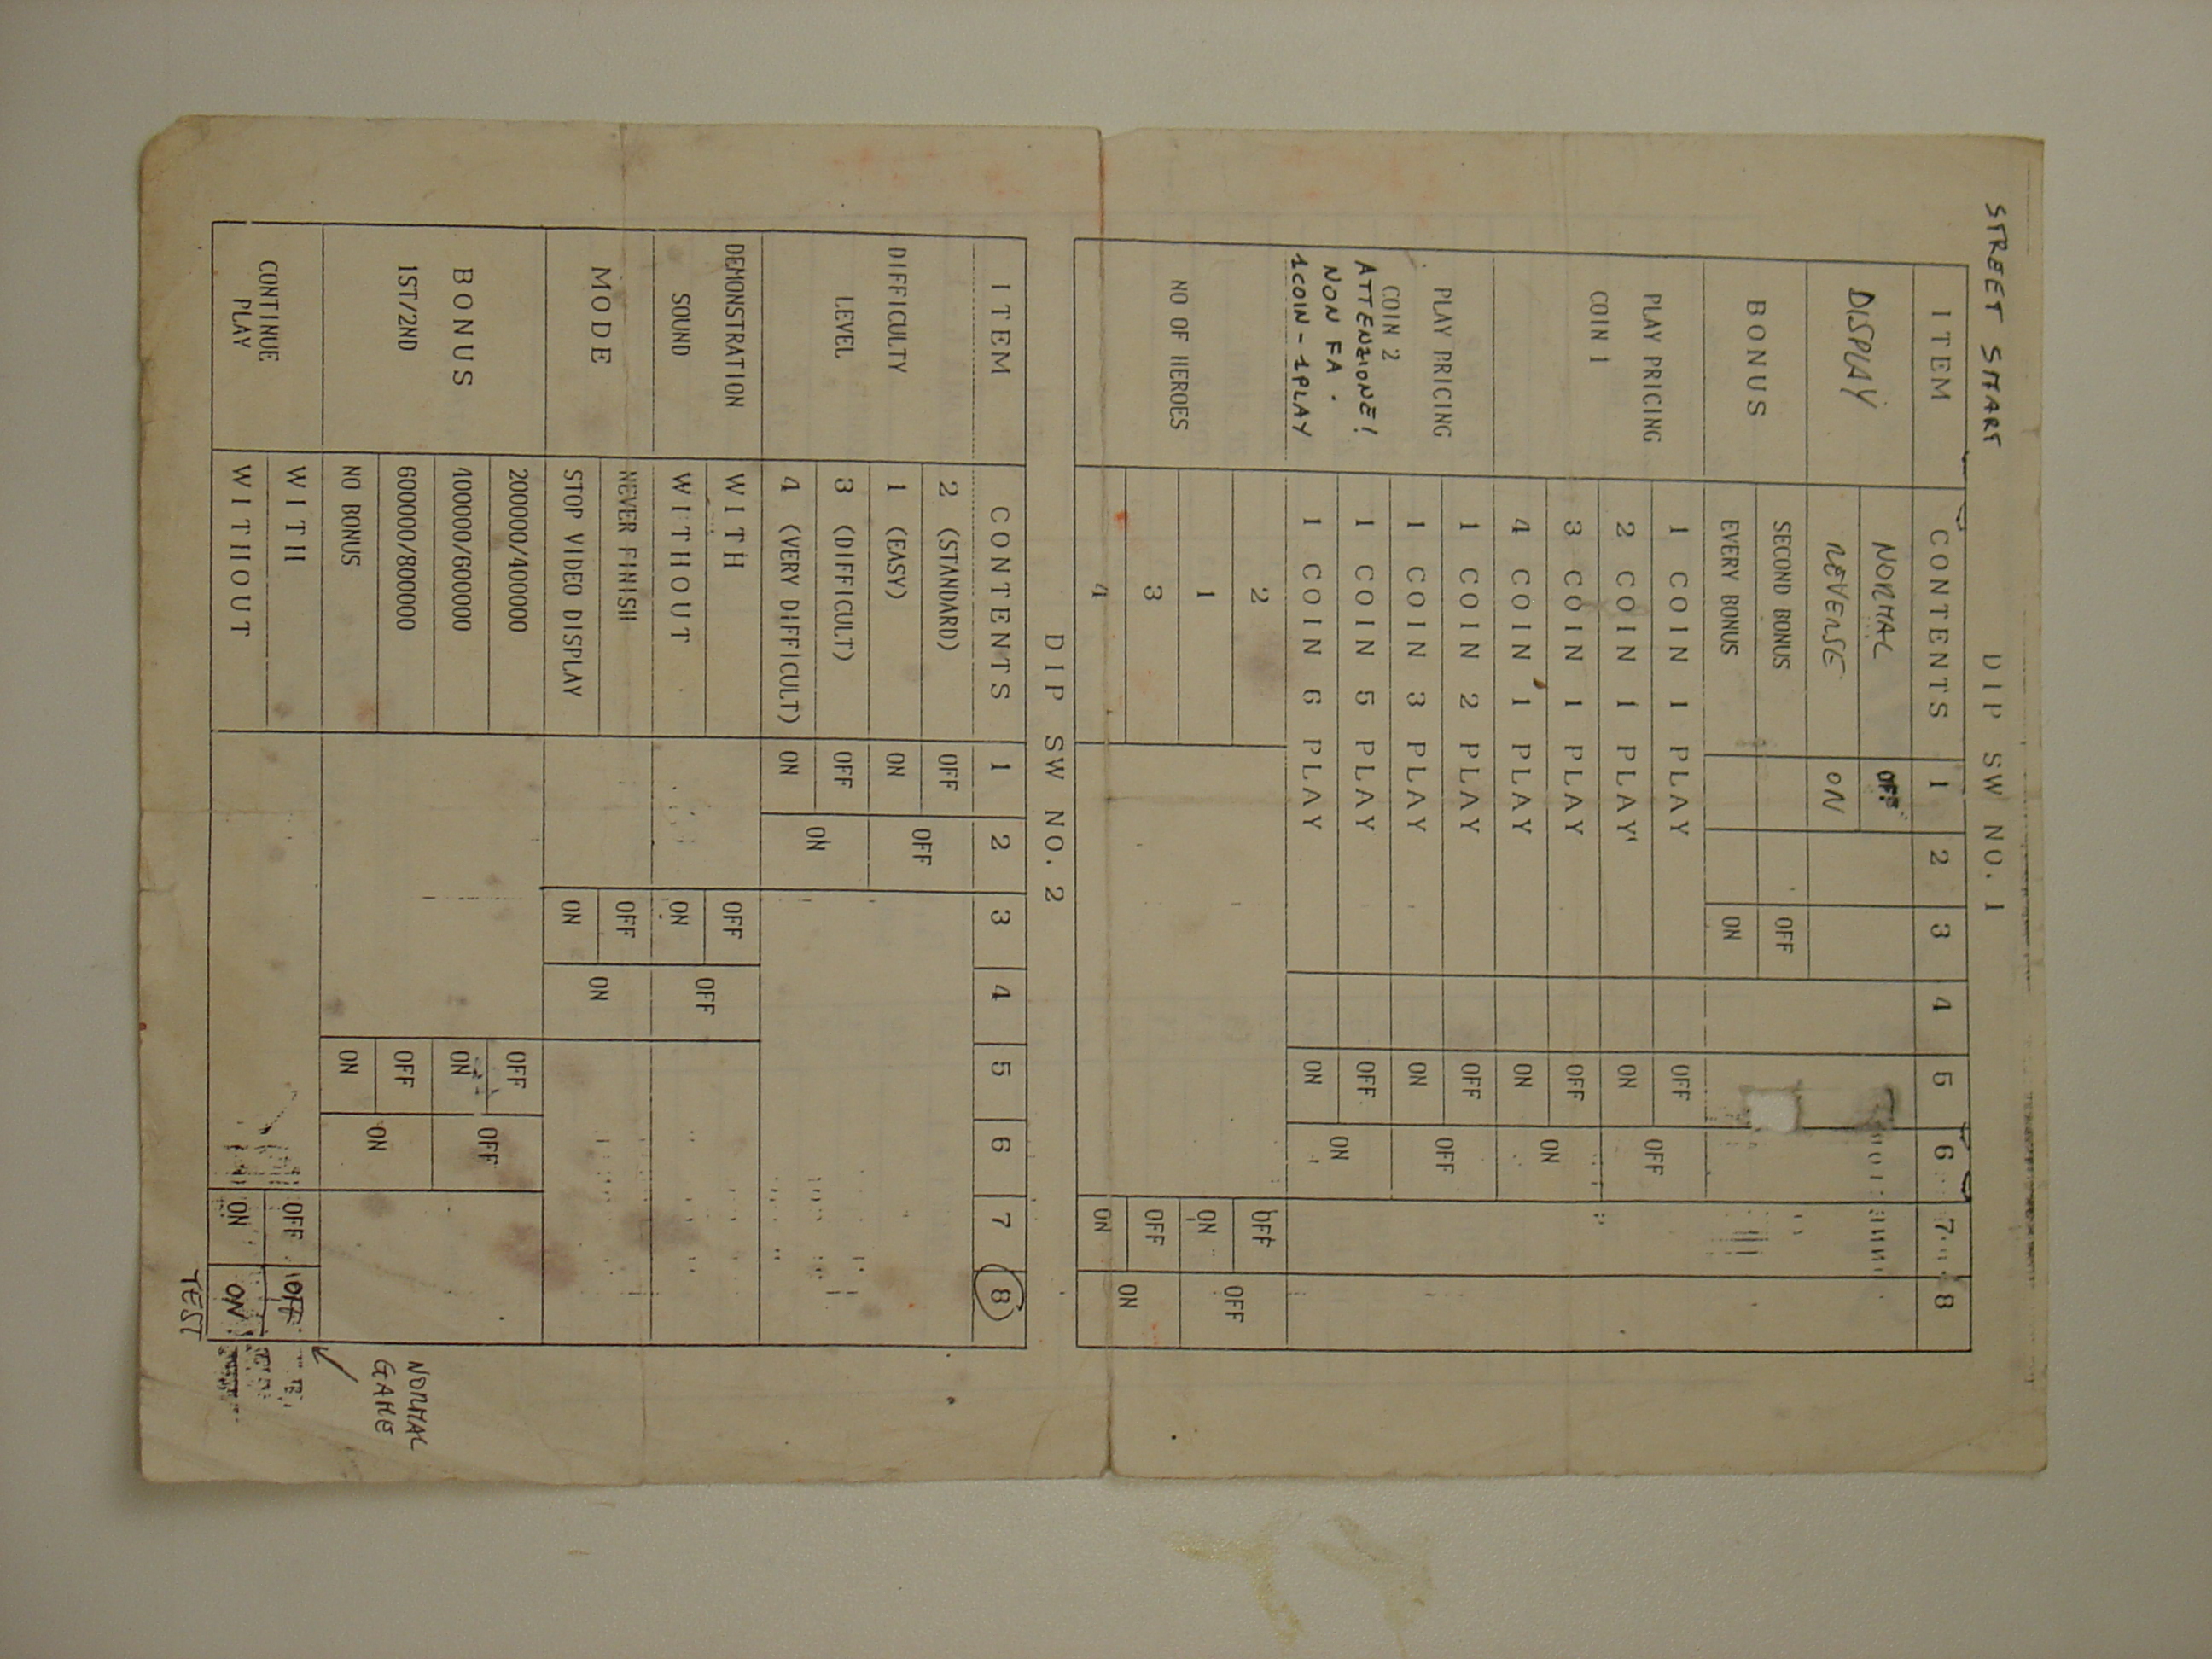 STREET SMART
DIP SW NO. 1
ITEM CONTENTS 1 2 3 4 5 6 7 8
DISPLAY NORMAL OFF
REVERSE ON
BONUS SECOND BONUS OFF
EVERY BONUS ON
PLAY PRICING COIN 1
1 COIN 1 PLAY OFF OFF
2 COIN 1 PLAY ON
3 COIN 1 PLAY OFF ON
4 COIN 1 PLAY ON
PLAY PRICING COIN 2
ATTENZIONE!
NON FA
1COIN - 1PLAY
1 COIN 2 PLAY OFF OFF
1 COIN 3 PLAY ON
1 COIN 5 PLAY OFF ON
1 COIN 6 PLAY ON
NO OF HEROES
2 OFF OFF
1 ON
3 OFF ON
4 ON
DIP SW NO. 2
ITEM CONTENTS 1 2 3 4 5 6 7 8
DIFFICULTY LEVEL
2 (STANDARD) OFF OFF
1 (EASY) ON
3 (DIFFICULT) OFF ON
4 (VERY DIFFICULT) ON
DEMONSTRATION SOUND
WITH OFF OFF
WITHOUT ON
MODE
NEVER FINISH OFF ON
STOP VIDEO DISPLAY ON
BONUS 1ST/2ND
200000/400000 OFF OFF
400000/600000 ON
600000/800000 OFF ON
NO BONUS ON
CONTINUE PLAY
WITH OFF OFF
WITHOUT ON ON
NORMAL
GAME
TEST